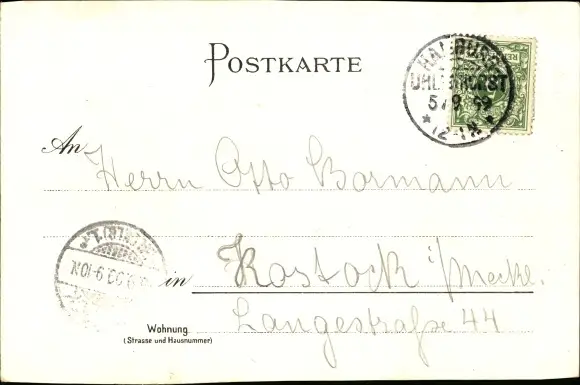 POSTKARTE
HAMBURG
UHLENHORST
5/9 99
* 12-1 N *
An Herrn Otto Bormann
in Rostock i/Meckl.
Wohnung Langestraße 44
(Strasse und Hausnummer)
9-10N